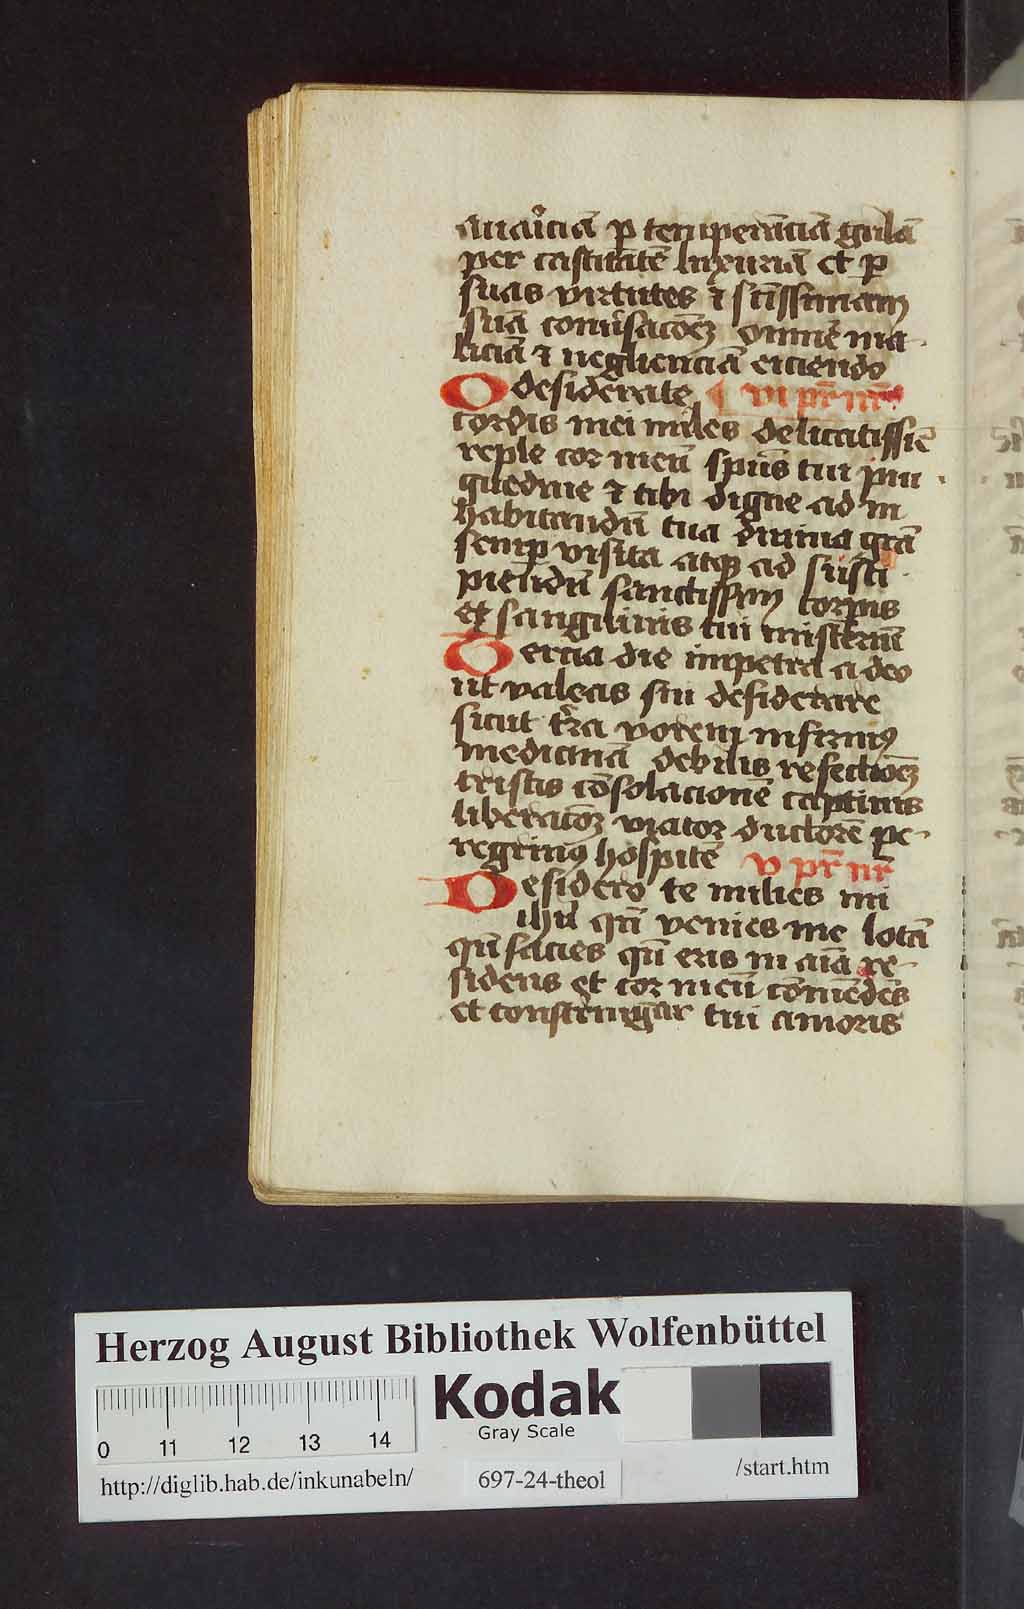 auar̉iciā ꝑ temperāciā gulā
per castitatē luxuriā et ꝑ
suas virtutes ⁊ sc̄issimam
suā conuʼsacōeꝫ omnē ma-
liciā ⁊ negliēnciā eiciendo
O desiderate ¶ vi pr̄ nr̄
cordis mei miles delicatissiē
reple cor meū spūs tui pin
guedine ⁊ tibi digne ad in
habitandū tua diuina grā
semꝑ visita atqꝫ ad susci
piendū sanctissim corpus
et sanguinis tui misteriū
Tercia die impetra a deo
ut valeas sin desiderare
sicut tʼra rorem infirmꝰ
medicinā debilis refectiōeꝫ
tristis cōsolacionē captiuus
liberacōeꝫ viator ductorē pe-
regrinꝰ hospitē v pr̄ nr̄
Desidero te milies mi
ihū qn̄ venies me lotā
qn̄ facies qn̄ eris in aīa re-
sidens et cor meū cōmēdēs
et constringar tui amoris
Herzog August Bibliothek Wolfenbüttel
Kodak
Gray Scale
0 11 12 13 14
http://diglib.hab.de/inkunabeln/ 697-24-theol /start.htm